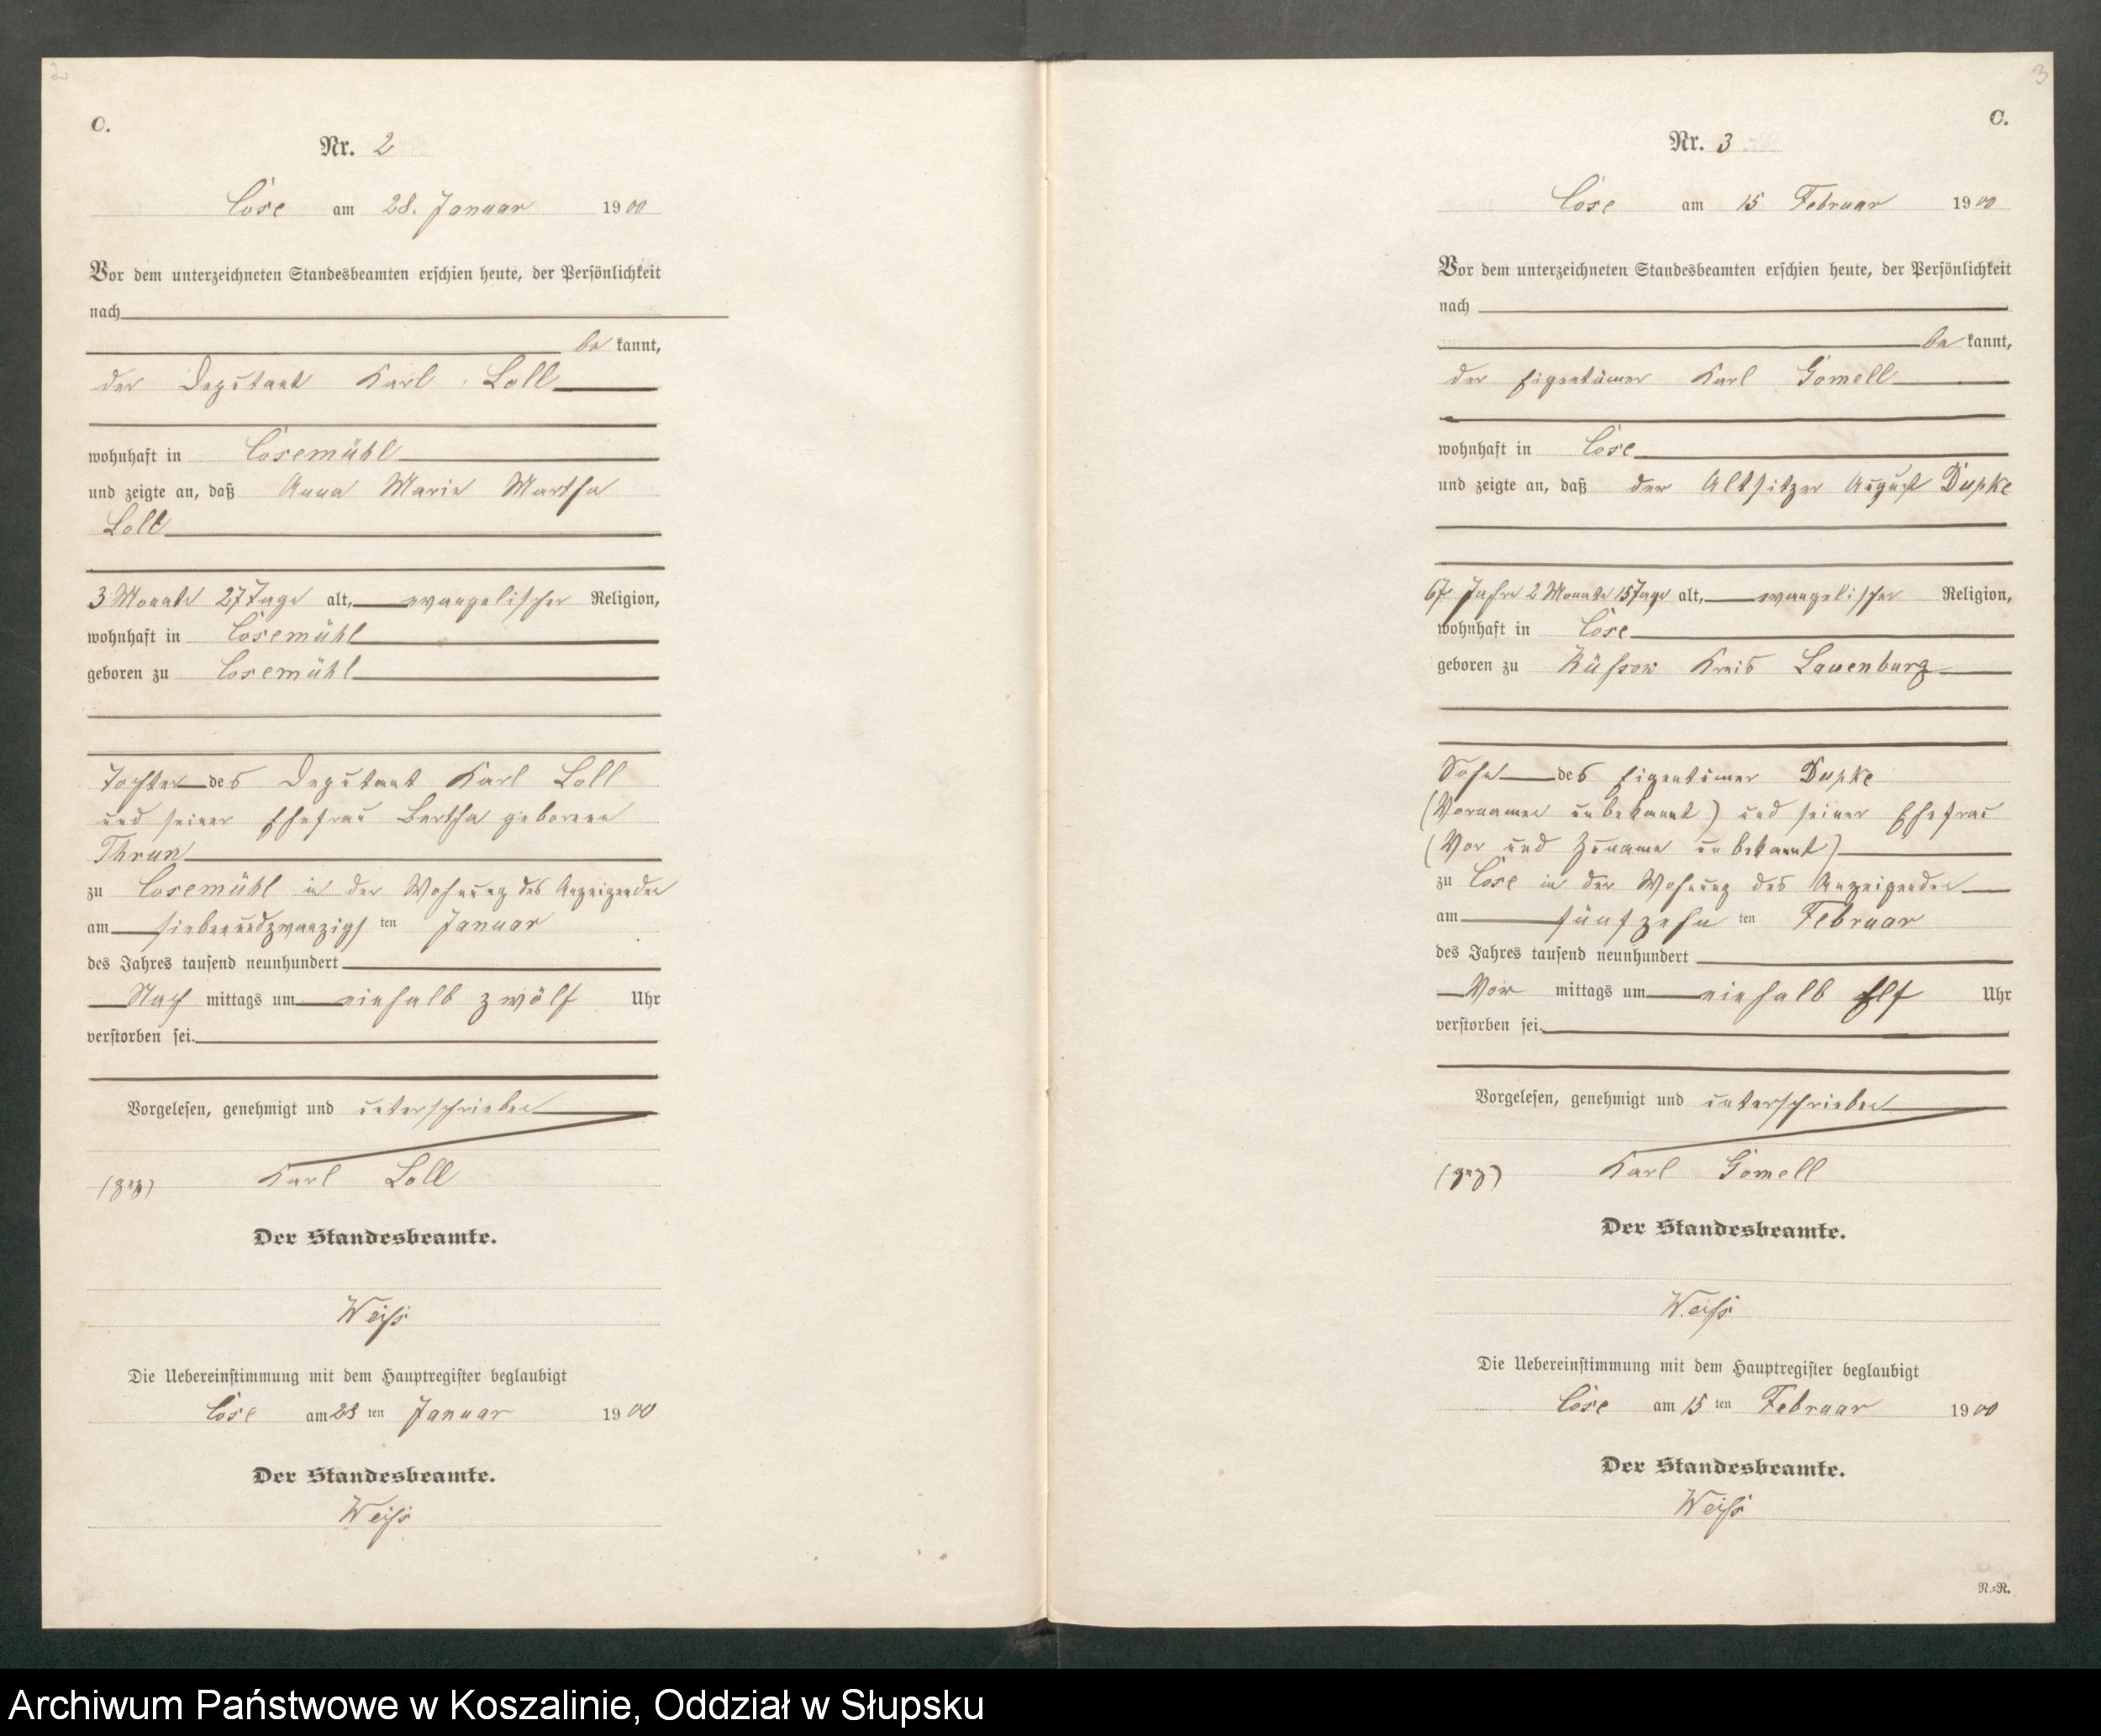 2
C.
Nr. 2
Cose am 28. Januar 1900
Vor dem unterzeichneten Standesbeamten erschien heute, der Persönlichkeit
nach
be kannt,
der Deputant Karl Loll
wohnhaft in Cosemühl
und zeigte an, daß Anna Marie Martha
Loll
3 Monate 27 Tage alt, evangelischer Religion,
wohnhaft in Cosemühl
geboren zu Cosemühl
Tochter des Deputant Karl Loll
und seiner Ehefrau Bertha geborene
Thrun
zu Cosemühl in der Wohnung des Anzeigenden
am siebenundzwanzigsten Januar
des Jahres tausend neunhundert
Nach mittags um einhalb zwölf Uhr
verstorben sei.
Vorgelesen, genehmigt und unterschrieben
(gez) Karl Loll
Der Standesbeamte.
Weiß
Die Uebereinstimmung mit dem Hauptregister beglaubigt
Cose am 28 ten Januar 1900
Der Standesbeamte.
Weiß
3
C.
Nr. 3
Cose am 15 Februar 1900
Vor dem unterzeichneten Standesbeamten erschien heute, der Persönlichkeit
nach
be kannt,
der Eigentümer Karl Gomell
wohnhaft in Cose
und zeigte an, daß der Altsitzer August Dupke
67 Jahre 2 Monate 15 Tage alt, evangelischer Religion,
wohnhaft in Cose
geboren zu Kreis Lauenburg
Sohn des Eigentümer Dupke
(Vornamen unbekannt) und seiner Ehefrau
(Vor und Zuname unbekannt)
zu Cose in der Wohnung des Anzeigenden
am fünfzehn ten Februar
des Jahres tausend neunhundert
Vor mittags um einhalb Elf Uhr
verstorben sei.
Vorgelesen, genehmigt und unterschrieben
(gez) Karl Gomell
Der Standesbeamte.
Weiß
Die Uebereinstimmung mit dem Hauptregister beglaubigt
Cose am 15 ten Februar 1900
Der Standesbeamte.
Weiß
N.=N.
Archiwum Państwowe w Koszalinie, Oddział w Słupsku